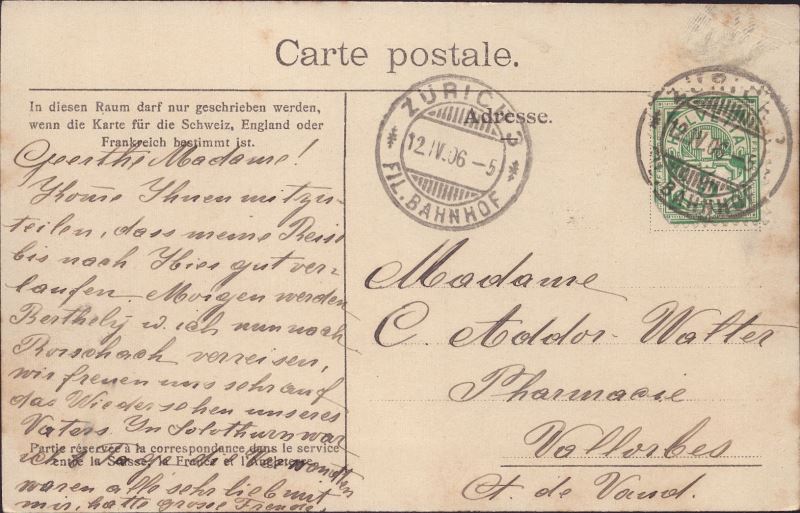 Carte postale.
In diesen Raum darf nur geschrieben werden,
wenn die Karte für die Schweiz, England oder
Frankreich bestimmt ist.
Geerthe Madame!
Kome Ihnen mitzu-
teilen, dass meine Reise
bis nach Hier gut ver-
laufen. Morgen werden
Berthely u. ich nun nach
Rorschach verreisen,
wir freuen uns sehr auf
das Wiedersehen unseres
Vaters In Solothurn war
Partie réservée à la correspondance dans le service
entre la Suisse, la France et l'Angleterre.
ich Tage
waren alle sehr lieb mit
mir, hatte grosse Freude,
ZÜRICH 3
12.IV.06 - 5
FIL. BAHNHOF
Adresse.
ZÜRICH
HELVETIA
IV. 06
BAHNHOF
Madame
C. Addor-Walter
Pharmacie
Vallorbes
Ct. de Vaud.